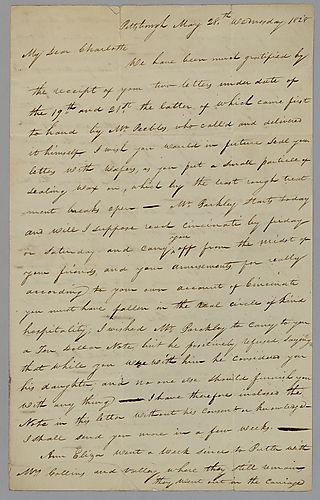 Pittsburgh May 28th Wednesday 1828
My Dear Charlotte
We have been much gratified by
the receipt of your two letters under date of
the 19th and 21st the latter of which came first
to hand by Mr Peebles, who call'd and delivered
it himself I wish you would in future seal your
letters with Wafers, as you put a small particle of
sealing Wax on, which by the least rough treat
ment breaks open — Mr Barkley Starts today
and will I suppose reach Cincinnati by friday
or Saturday and carry you off from the midst of
your friends, and your amusements, for really
according to your own account of Cincinati
you must have fallen in the real circle of kind
hospitality; I wished Mr Barkley to carry to you
a Ten Dollar Note, but he positively refused saying
that while you were with him he considered you
his daughter, and no one else should furnish you
with any thing) — I have therefore inclosed the
Note in this letter without his consent or knowledge
I shall send you more in a few weeks. —
Ann Eliza went a Week since to Butler with
Mrs Collins and where they still remain
they went out in the Carriage